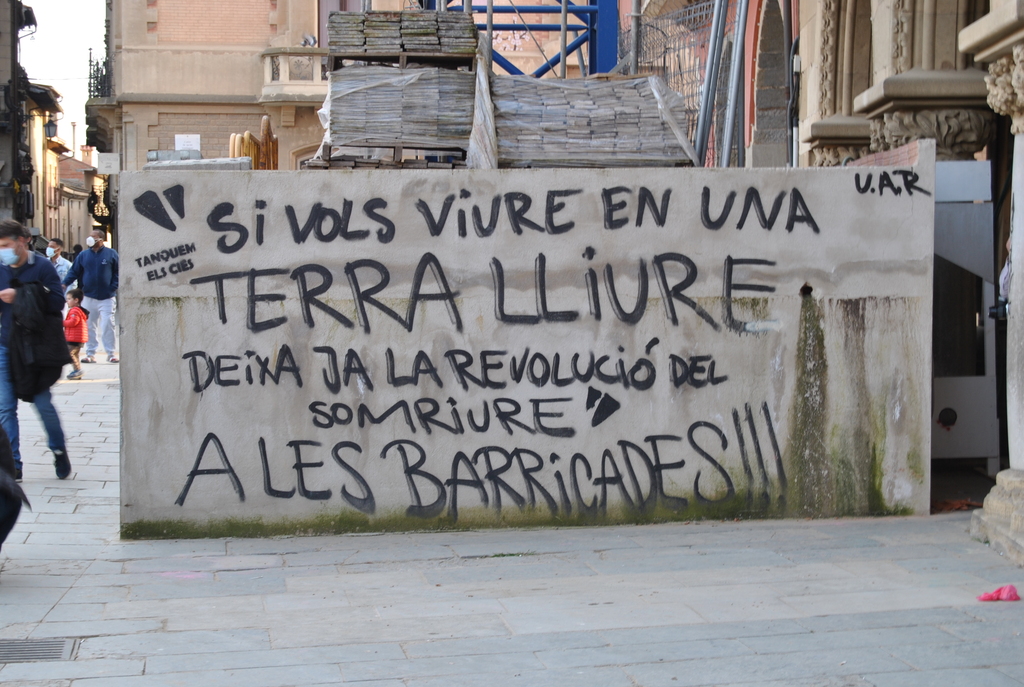 U.A.R
" SI VOLS VIURE EN UNA
TANQUEM
ELS CIES
TERRA LLIURE
DEIXA JA LA REVOLUCIÓ DEL
SOMRIURE "
A LES BARRICADES!!!